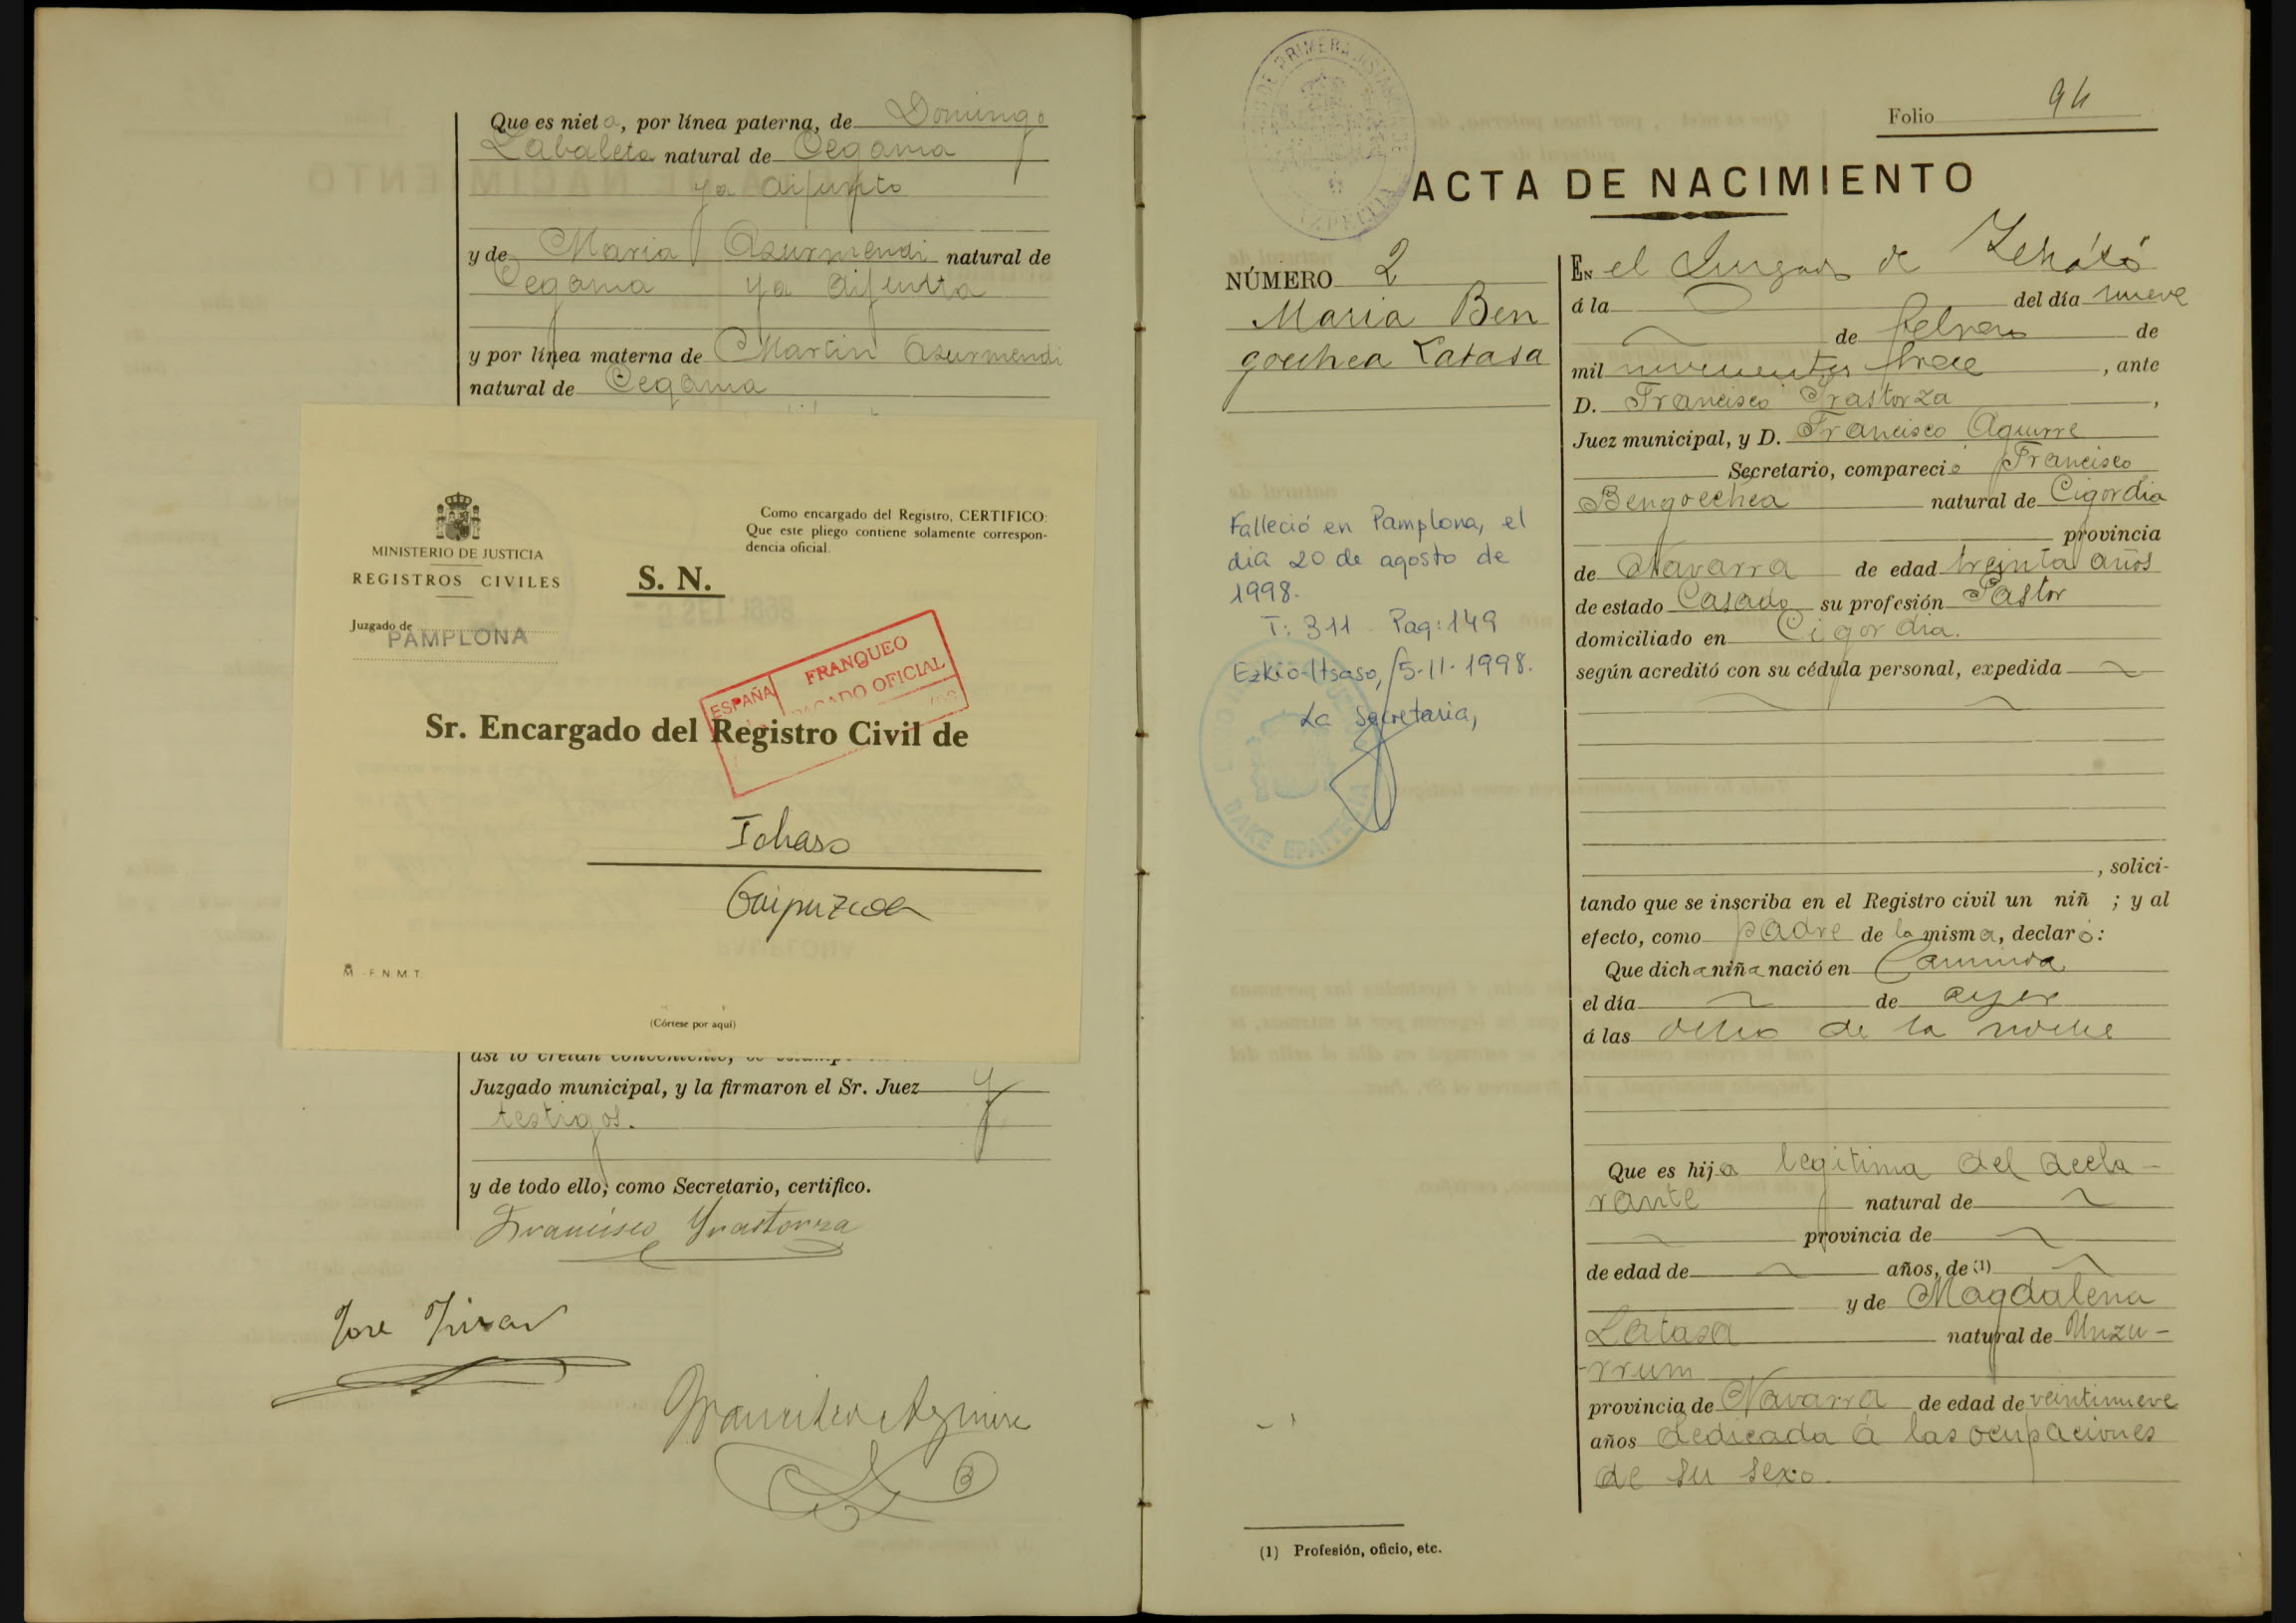 Que es nieta, por línea paterna, de Domingo
Zabaleta natural de Cegama
ya difunto
y de Maria Azurmendi natural de
Cegama ya difunta
y por línea materna de Martin Azurmendi
natural de Cegama
MINISTERIO DE JUSTICIA
REGISTROS CIVILES
Juzgado de
PAMPLONA
S. N.
Como encargado del Registro, CERTIFICO:
Que este pliego contiene solamente correspon-
dencia oficial.
ESPAÑA
FRANQUEO
PAGADO OFICIAL
Sr. Encargado del Registro Civil de
Ichaso
Guipuzcoa
F.N.M.T.
(Córtese por aquí)
así lo creían conveniente, se
Juzgado municipal, y la firmaron el Sr. Juez y
testigos.
y de todo ello, como Secretario, certifico.
Francisco Yrastorza
Jose
Francisco Aguirre
Folio 94
ACTA DE NACIMIENTO
NÚMERO 2
Maria Ben
goechea Latasa
Falleció en Pamplona, el
día 20 de agosto de
1998.
T: 311 Pag: 149
Ezkio-Itsaso, 5-11-1998.
La Secretaria,
EN el Juzgado de
á la del día nueve
de febrero de
mil novecientos trece, ante
D. Francisco Yrastorza,
Juez municipal, y D. Francisco Aguirre
Secretario, compareció Francisco
Bengoechea natural de Cigordia
provincia
de Navarra de edad treinta años
de estado Casado su profesión Pastor
domiciliado en Cigordia.
según acreditó con su cédula personal, expedida
, solici-
tando que se inscriba en el Registro civil un niñ ; y al
efecto, como padre de la misma, declaró:
Que dicha niña nació en
el día de ayer
á las ocho de la noche
Que es hija legitima del decla-
rante natural de
provincia de
de edad de años, de (1)
y de Magdalena
Latasa natural de Unzu-
rrum
provincia de Navarra de edad de veintinueve
años dedicada á las ocupaciones
de su sexo.
(1) Profesión, oficio, etc.